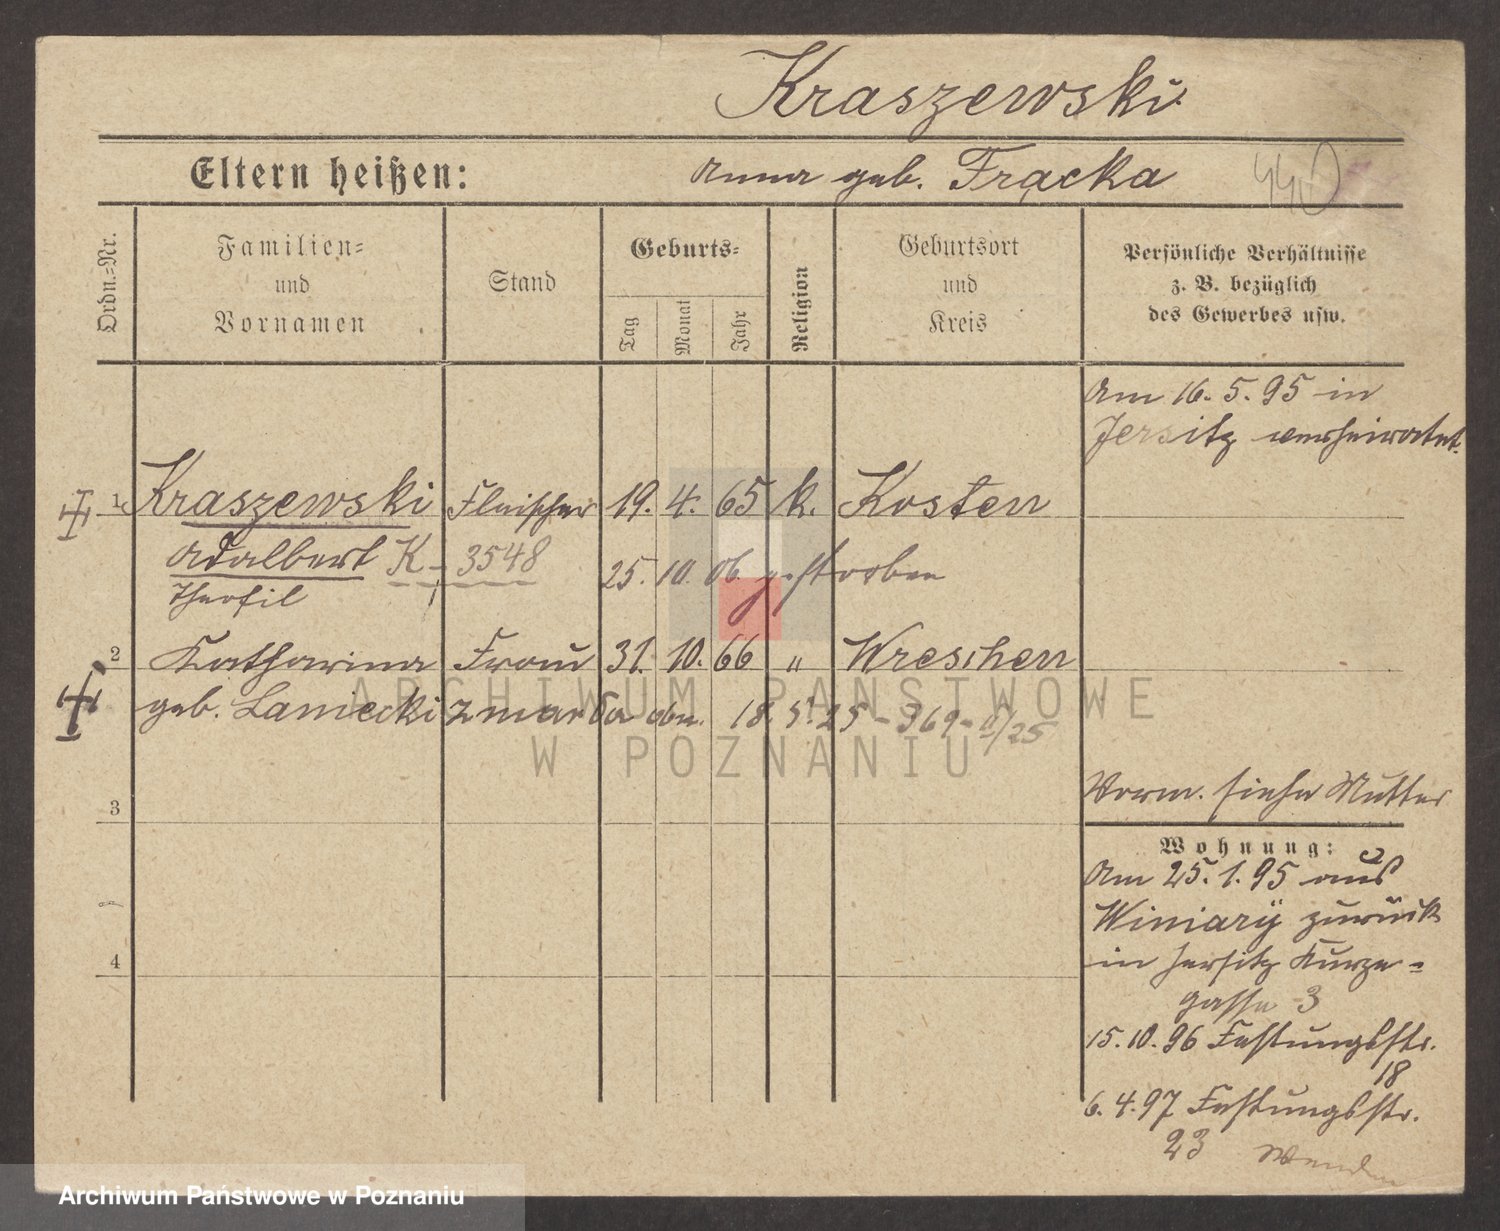 Kraszewski
Eltern heißen: Anna geb. Frącka
440
Ordn.-Nr.
Familien-
und
Vornamen
Stand
Geburts-
Tag
Monat
Jahr
Religion
Geburtsort
und
Kreis
Persönliche Verhältnisse
z. B. bezüglich
des Gewerbes usw.
Am 16. 5. 95 in
Jersitz verheiratet.
1 Kraszewski Fleischer 19. 4. 65 k. Kosten
Adalbert K - 3548 25. 10. 06 gestorben
Theofil
2 Katharina Frau 31. 10. 66 " Wreschen
geb. Laniecki zmarła dn. 18. 5. 25 - 369 -
ARCHIWUM PAŃSTWOWE
W POZNANIU
3
Vorm. siehe Mutter
Wohnung:
Am 25. 1. 95 aus
Winiary zurück
4
in Jersitz Kurze-
gasse 3
15. 10. 96 Festungsstr.
18
6. 4. 97 Festungsstr.
23 Wenden
Archiwum Państwowe w Poznaniu